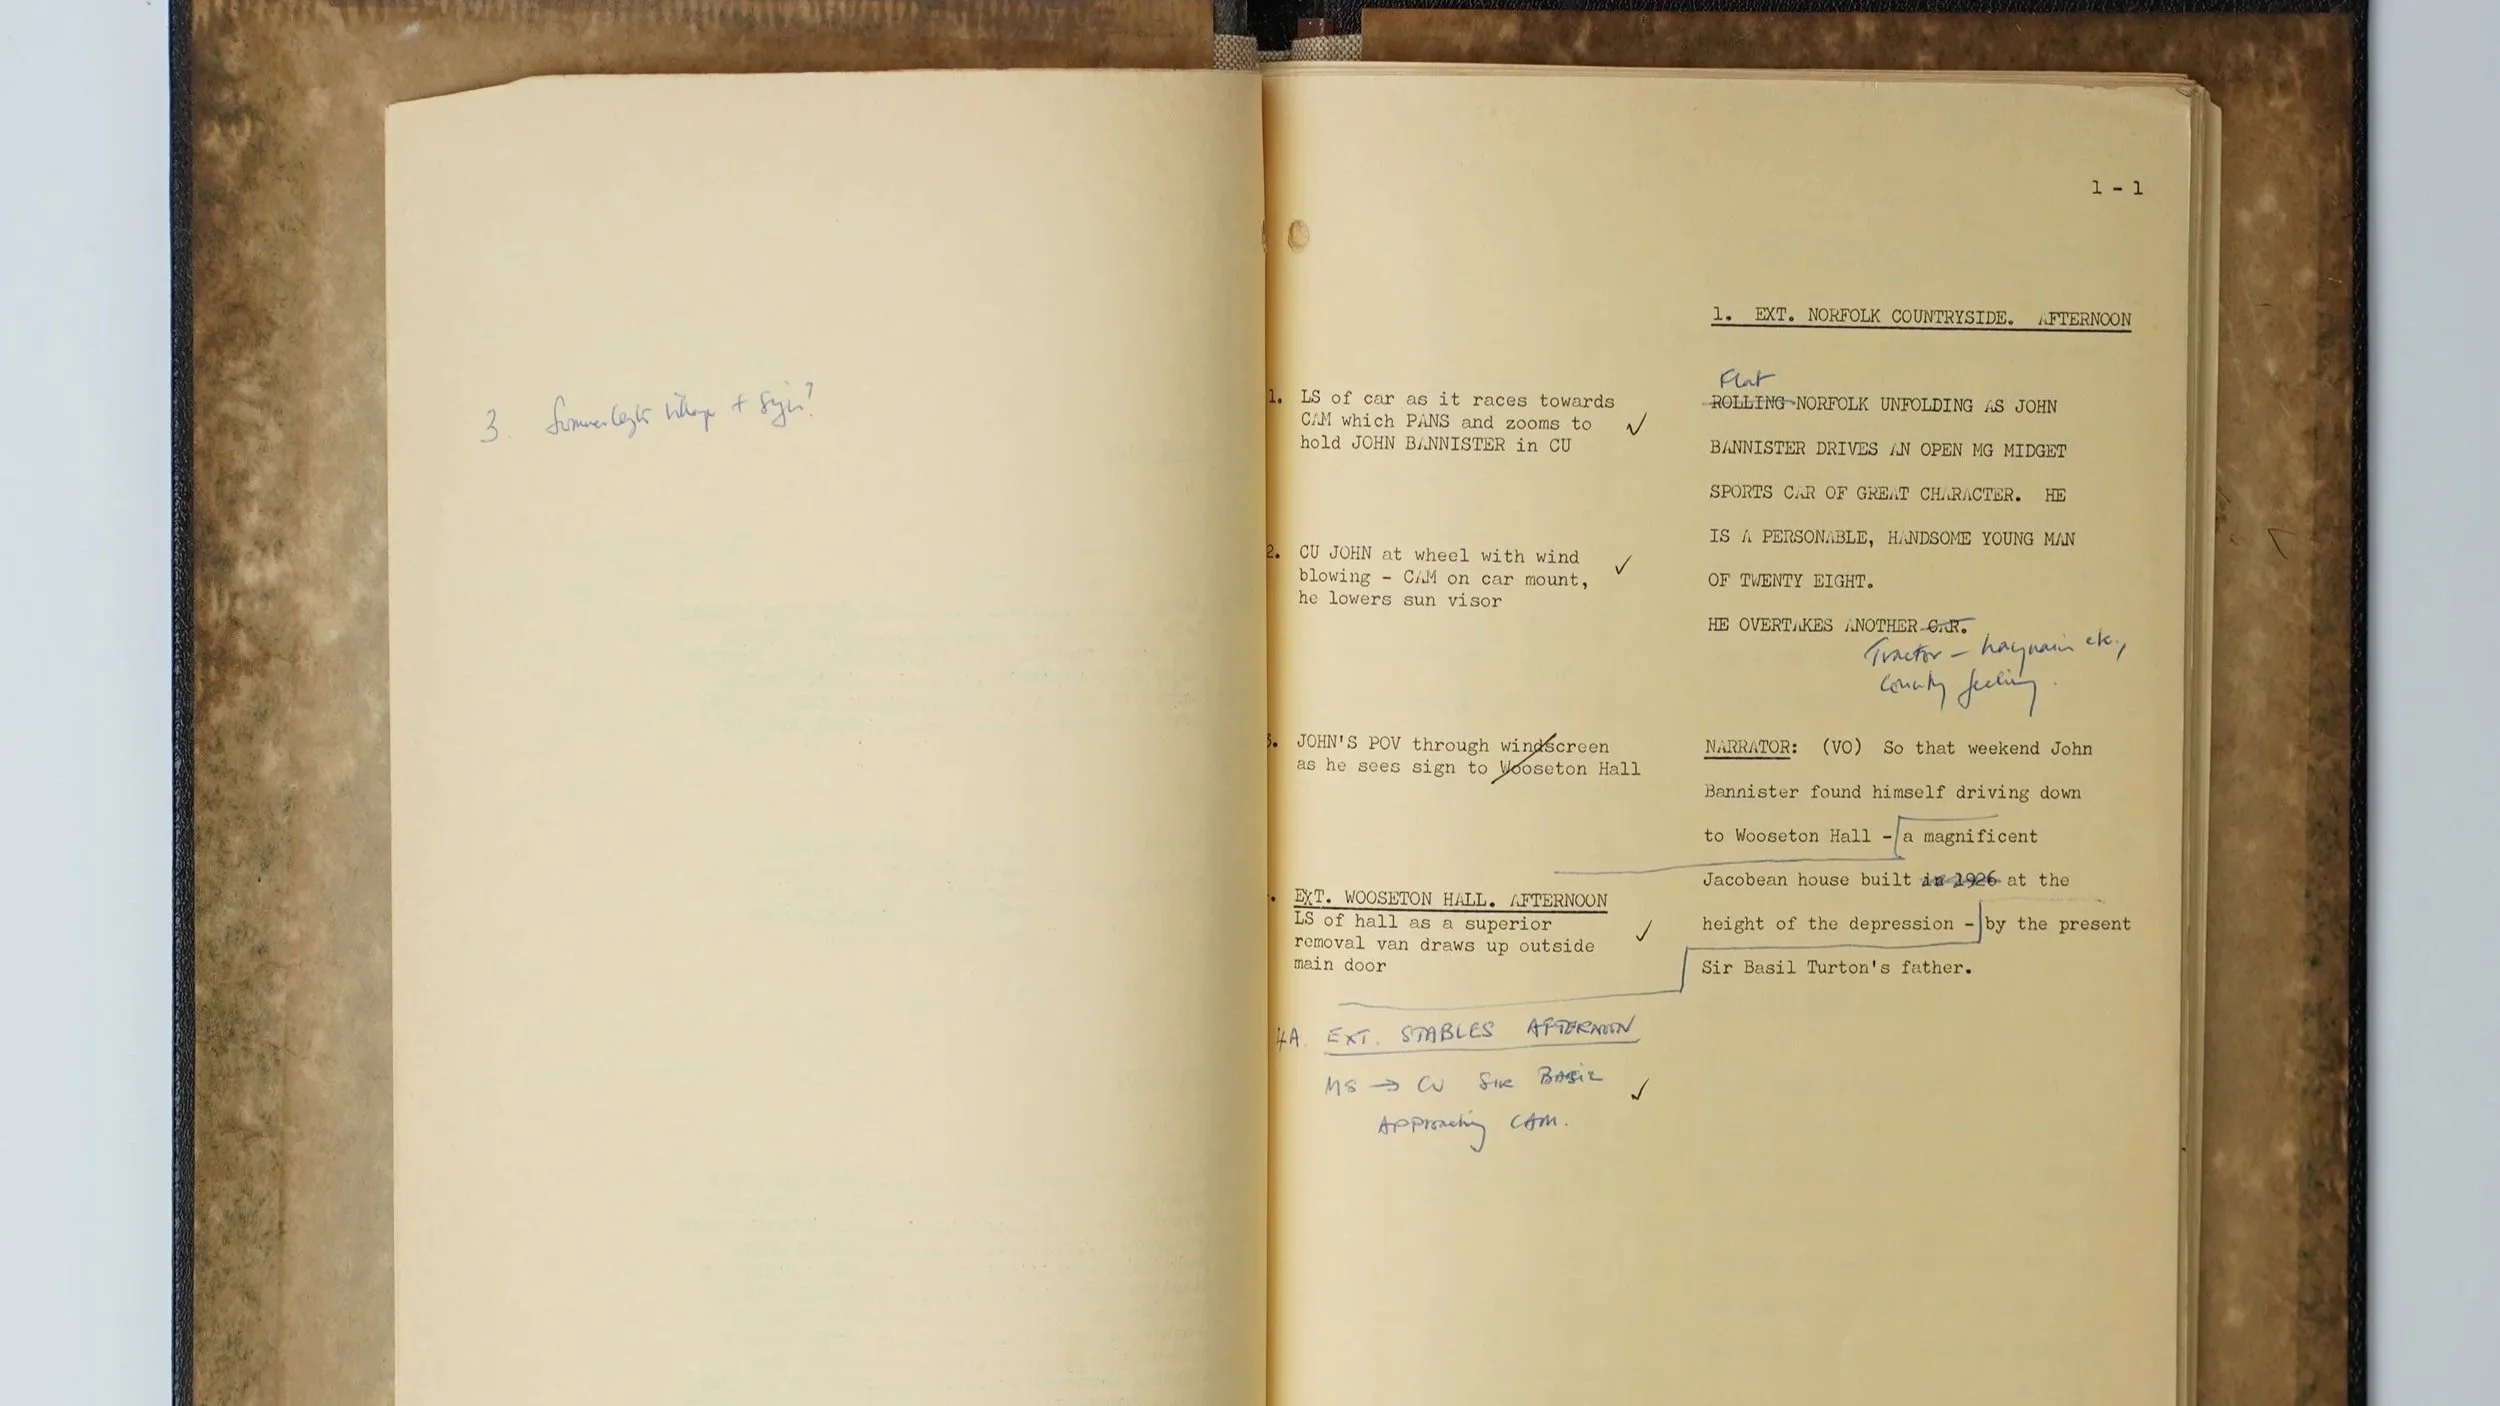 3. Somerleyton Village + Sign?
1 - 1
1. EXT. NORFOLK COUNTRYSIDE. AFTERNOON
1. LS of car as it races towards
CAM which PANS and zooms to
hold JOHN BANNISTER in CU
2. CU JOHN at wheel with wind
blowing - CAM on car mount,
he lowers sun visor
3. JOHN'S POV through windscreen
as he sees sign to Wooseton Hall
. EXT. WOOSETON HALL. AFTERNOON
LS of hall as a superior
removal van draws up outside
main door
4A. EXT. STABLES AFTERNOON
MS → CU SIR BASIL
APProaching CAM.
Flat
ROLLING NORFOLK UNFOLDING AS JOHN
BANNISTER DRIVES AN OPEN MG MIDGET
SPORTS CAR OF GREAT CHARACTER. HE
IS A PERSONABLE, HANDSOME YOUNG MAN
OF TWENTY EIGHT.
HE OVERTAKES ANOTHER CAR.
Tractor - haywain etc.,
Country feeling.
NARRATOR: (VO) So that weekend John
Bannister found himself driving down
to Wooseton Hall - a magnificent
Jacobean house built in 1926 at the
height of the depression - by the present
Sir Basil Turton's father.